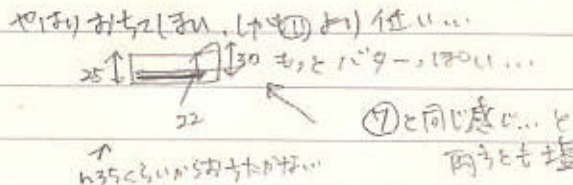 やはりおちてしまい、しかも⑪より低い…
25 30 もっとバターっぽい…
22
⑦と同じ感じ…と
h35くらいからおちたかない
両方とも塩